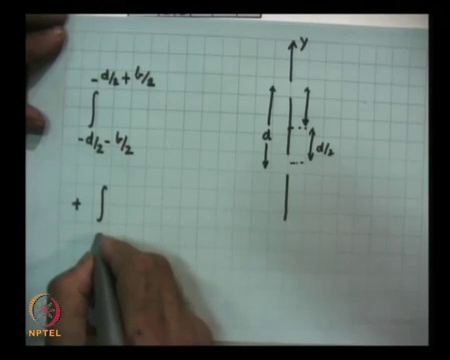 -d/2 + b/2
∫
-d/2 - b/2
+ ∫
Y
d
d/2
NPTEL